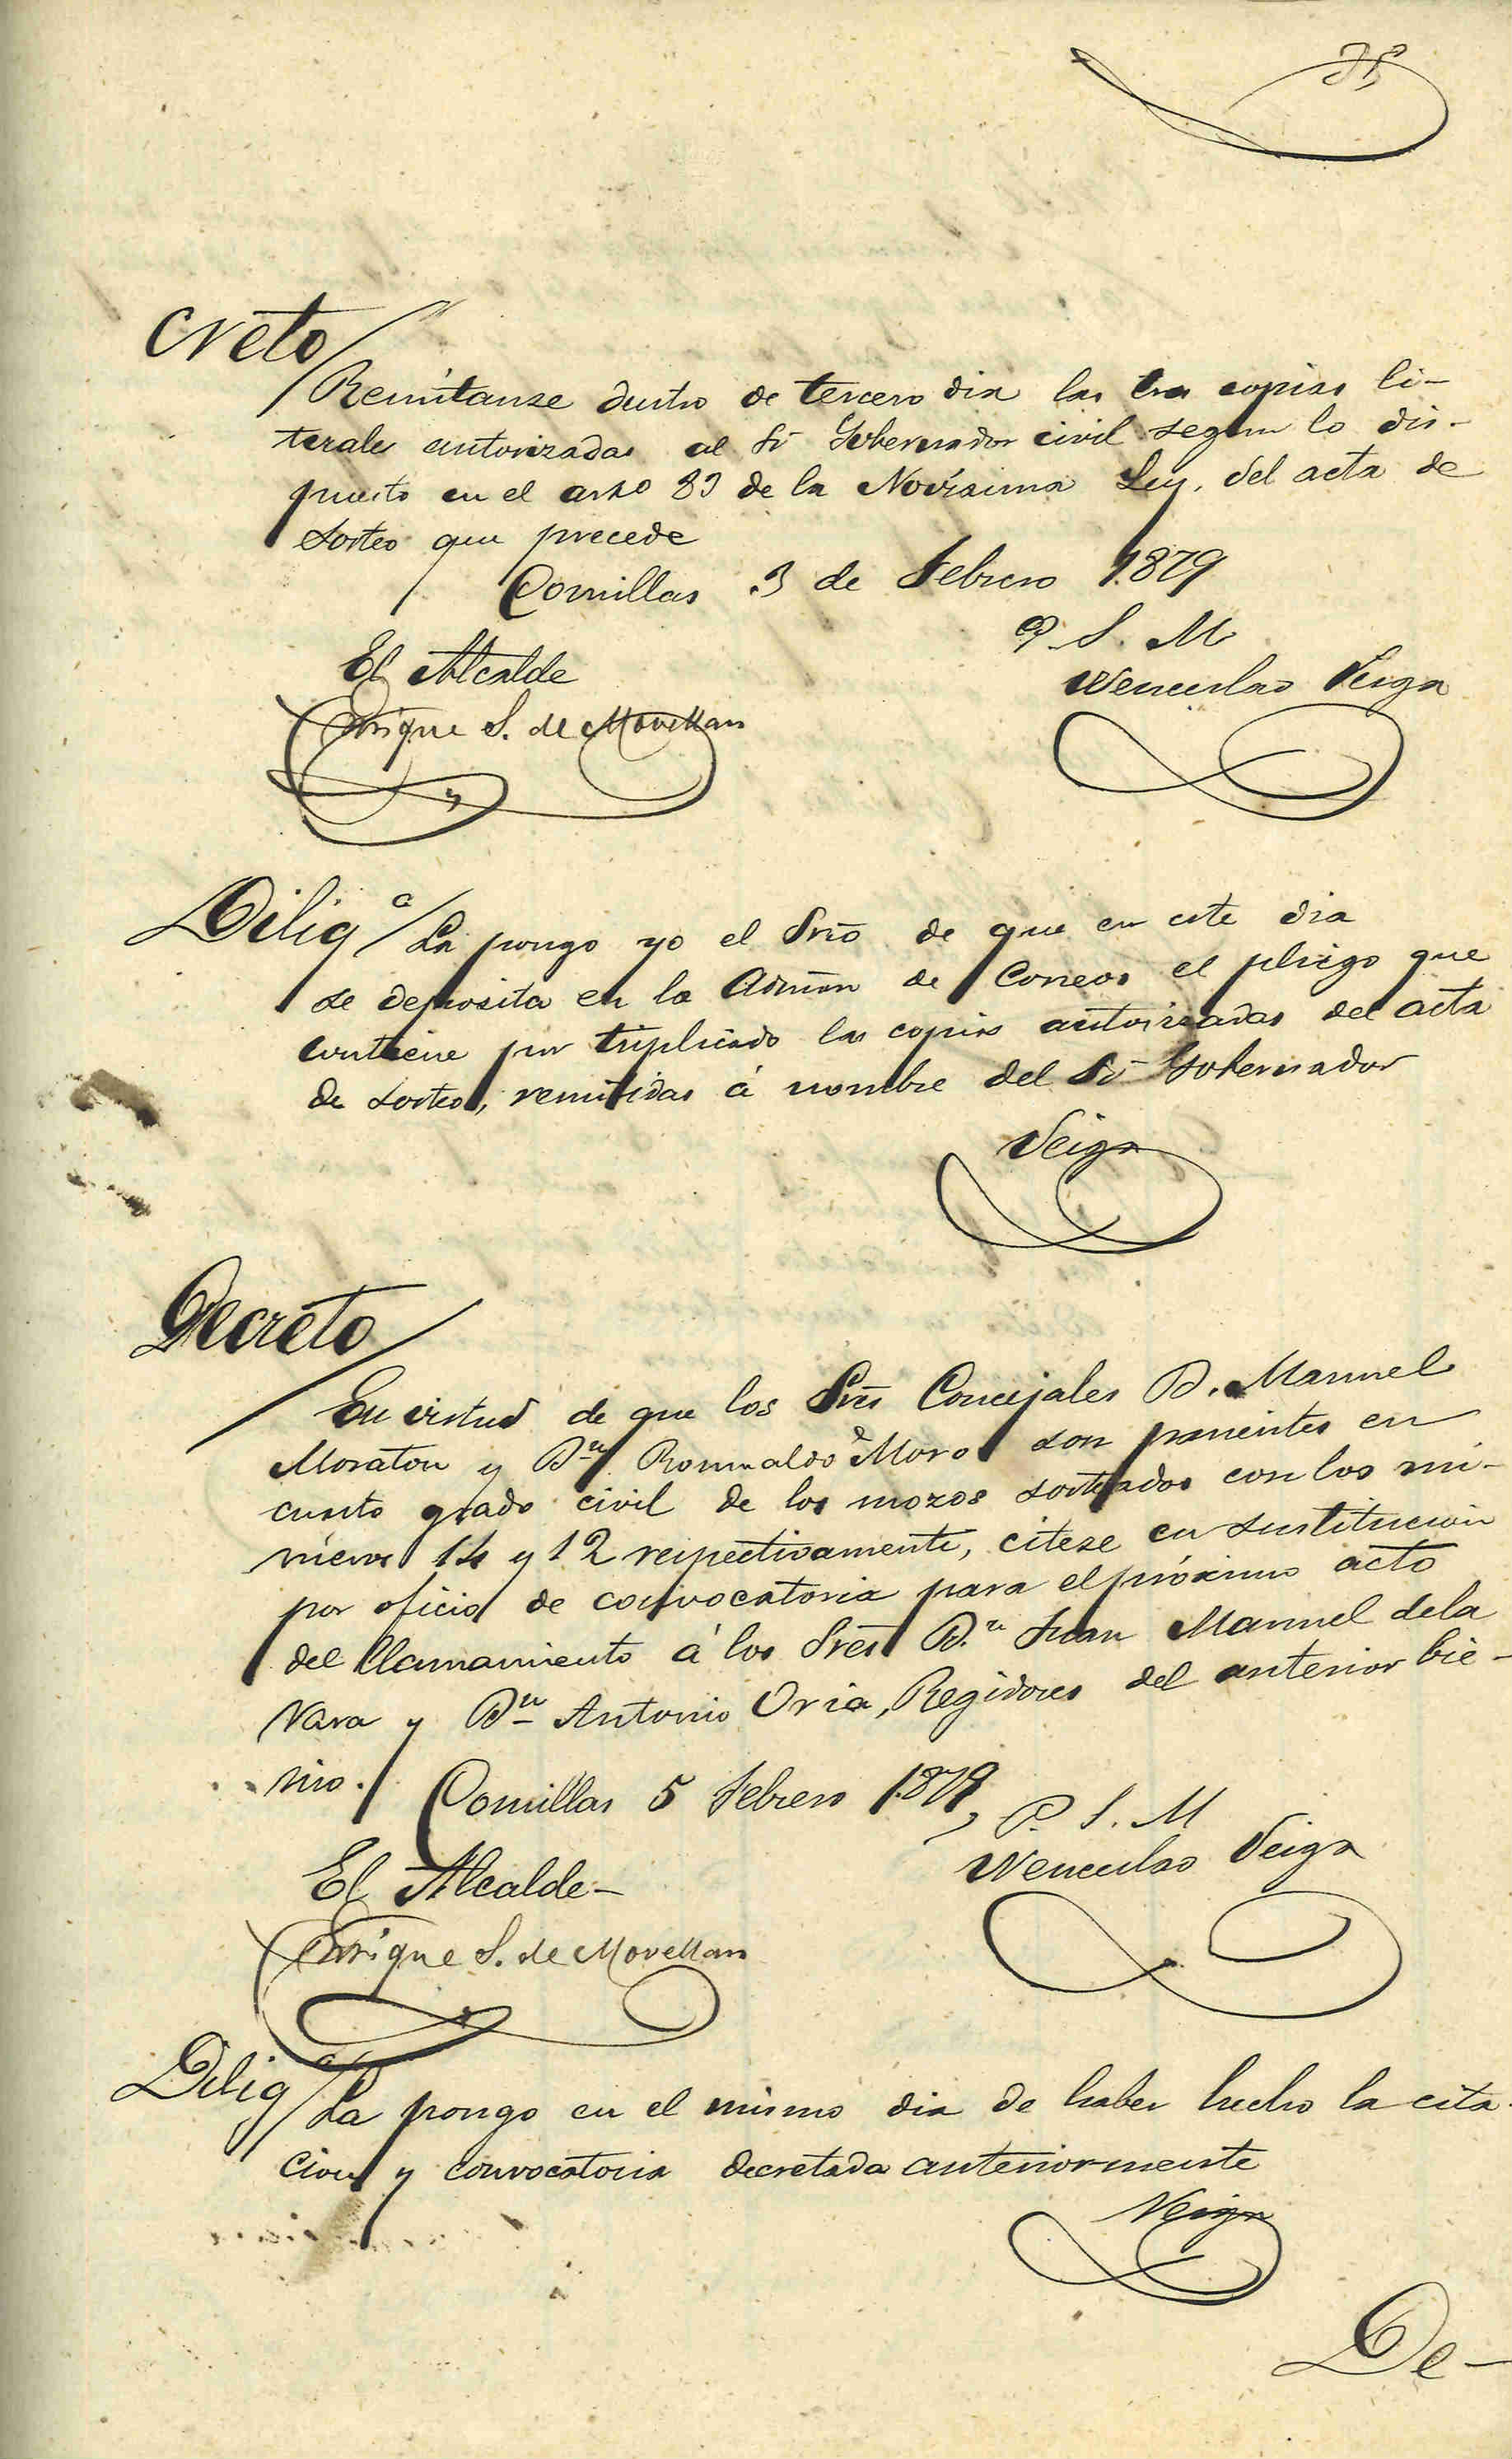 creto
Remítanse dentro de tercero dia las tres copias li-
terales autorizadas al Sr Gobernador civil segun lo dis-
puesto en el arto 83 de la Novisima Ley, del acta de
sorteo que precede
Comillas 3 de Febrero 1879
El Alcalde
P. S. M
Wenceslao Veiga
Enrique S. de Movellan
Diliga La pongo yo el Srio de que en este dia
se deposita en la Admon de Correos el pliego que
contiene por triplicado las copias autorizadas del acta
de sorteo, remitidas á nombre del Sr Gobernador
Veiga
Decreto
En virtud de que los Sres Concejales D. Manuel
Moraton y Dn Romualdo de Moro son parientes en
cuarto grado civil de los mozos sorteados con los nú-
meros 14 y 12 respectivamente, citese en sustitucion
por oficio de convocatoria para el próximo acto
del llamamiento á los Sres Dn Juan Manuel de la
Vara y Dn Antonio Oria, Regidores del anterior bie-
nio. Comillas 5 Febrero 1879,
P. S. M
El Alcalde-
Wenceslao Veiga
Enrique S. de Movellan
Diliga La pongo en el mismo dia de haber hecho la cita-
cion y convocatoria decretada anteriormente
Veiga
De-